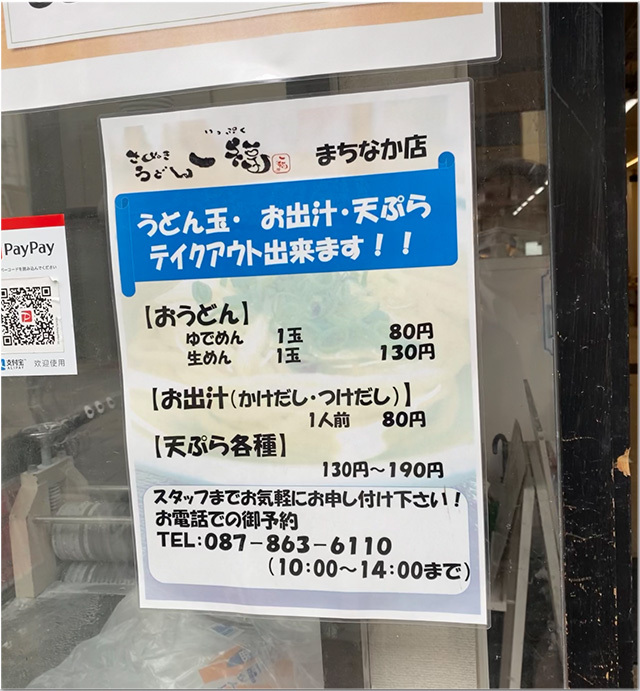 いっぷく
さぬき
うどん 一福 まちなか店
うどん玉・お出汁・天ぷら
テイクアウト出来ます！！
【おうどん】
ゆでめん 1玉 80円
生めん 1玉 130円
【お出汁（かけだし・つけだし）】
1人前 80円
【天ぷら各種】
130円〜190円
スタッフまでお気軽にお申し付け下さい！
お電話での御予約
TEL:087-863-6110
（10:00〜14:00まで）
PayPay
支付宝 欢迎使用
ALIPAY